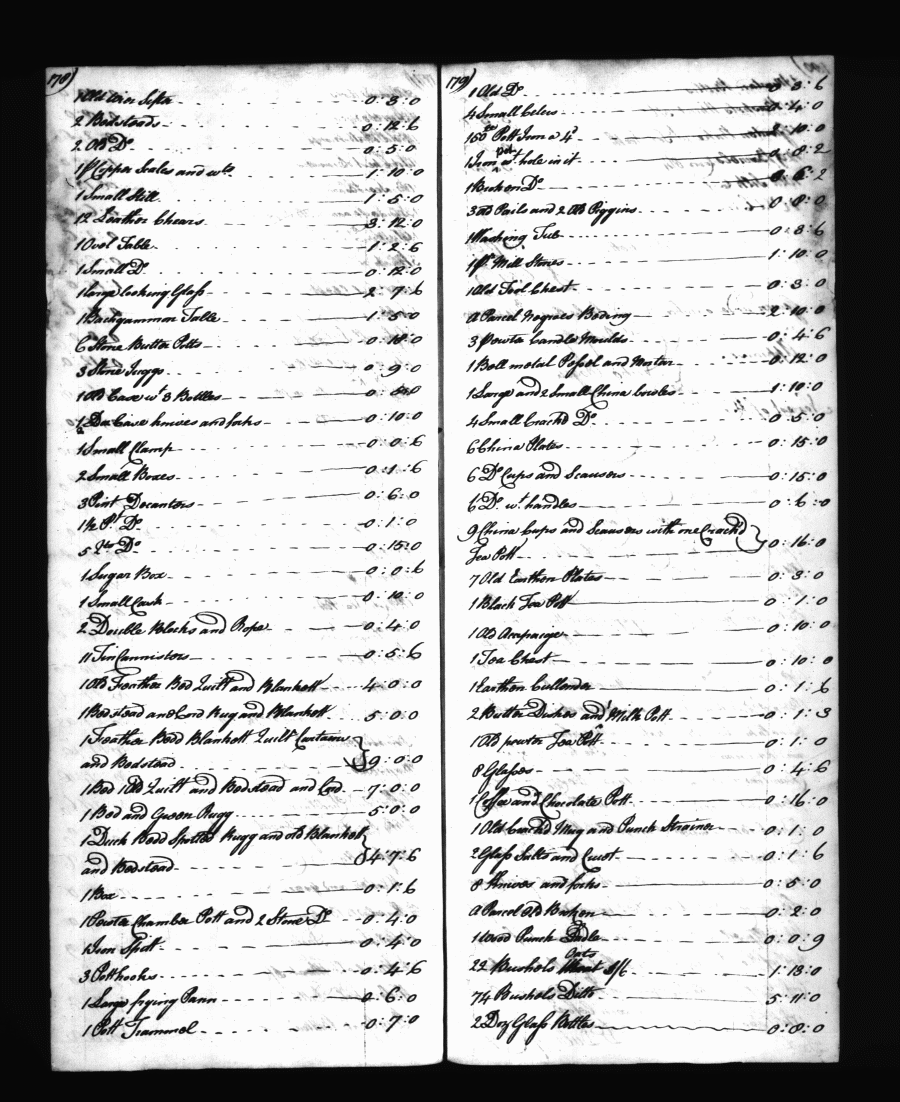 178)
1 Old Wier Sifter 0:3:0
2 Bedsteads 0:12:6
2 Old Do 0:5:0
1 Pr Copper Scales and wts 1:10:0
1 Small Still 1:5:0
12 Leather Chears 3:12:0
1 Ovel Table 1:2:6
1 Small Do 0:12:0
1 Large looking Glass 2:7:6
1 Backgammon Table 1:5:0
6 Stone Butter Potts 0:18:0
3 Stone Juggs 0:9:0
1 Old Case wt 8 Bottles 0:
1 Do Case knives and forks 0:10:0
1 Small Clamp 0:0:6
2 Small Boxes 0:1:6
3 Pint Decanters 0:6:0
1 ½ Pt Do 0:1:0
5 Qt Do 0:15:0
1 Sugar Box 0:0:6
1 Small Cask 0:10:0
2 Double Blocks and Rope 0:4:0
11 Tin Cannisters 0:5:6
1 Old Feather Bed Quilt and Blankett 4:0:0
1 Bedstead and Cord Rug and Blankett 5:0:0
1 Feather Bedd Blankett Quilt Curtains
and Bedstead 9:0:0
1 Bed Old Quilt and Bedstead and Cord 7:0:0
1 Bed and Green Rugg 5:0:0
1 Duck Bedd Spotted Rugg and old Blanket
and Bedstead 4:7:6
1 Box 0:1:6
1 Pewter Chamber Pott and 2 Stone Do 0:4:0
1 Iron Spitt 0:4:0
3 Potthooks 0:4:6
1 Large frying Pann 0:6:0
1 Pott Trammel 0:7:0
179)
1 Old Do 0:3:6
4 Small 0:4:0
Pott Iron a 4d :10:0
1 Iron pot wt hole in it 0:8:2
1 Broken Do 0:6:2
3 old Pails and 2 Old Piggins 0:8:0
1 Washing Tub 0:3:6
1 Pr Mill Stones 1:10:0
1 Old Tool Chest 0:3:0
A Parcel Negroes Beding 2:10:0
3 Pewter Candle Moulds 0:4:6
1 Bell metal Pessel and Mortar 0:12:0
1 Large and 2 Small China bowles 1:10:0
4 Small Crackd Do 0:5:0
6 China Plates 0:15:0
6 Do Cups and Scausers 0:15:0
6 Do wt handles 0:6:0
9 China Cups and Scausers with one Crackd
Tea Pott 0:16:0
7 Old Earthen Plates 0:3:0
1 Black Tea Pott 0:1:0
1 Old 0:10:0
1 Tea Chest 0:10:0
1 Earthen Cullender 0:1:6
2 Butter Dishes and 1 Milk Pott 0:1:3
1 Old pewter Tea Pott 0:1:0
8 Glasses 0:4:6
1 Coffee and 1 Chocolate Pott 0:16:0
1 Old Crackd Mug and Punch Strainer 0:1:0
2 Glass Salts and Cruet 0:1:6
8 Knives and forks 0:5:0
A Parcel Old Broken 0:2:0
1 Wood Punch Ladle 0:0:9
Oats
22 Bushels 1/6 1:13:0
74 Bushels Ditto 5:11:0
2 Doz Glass Bottles 0:8:0